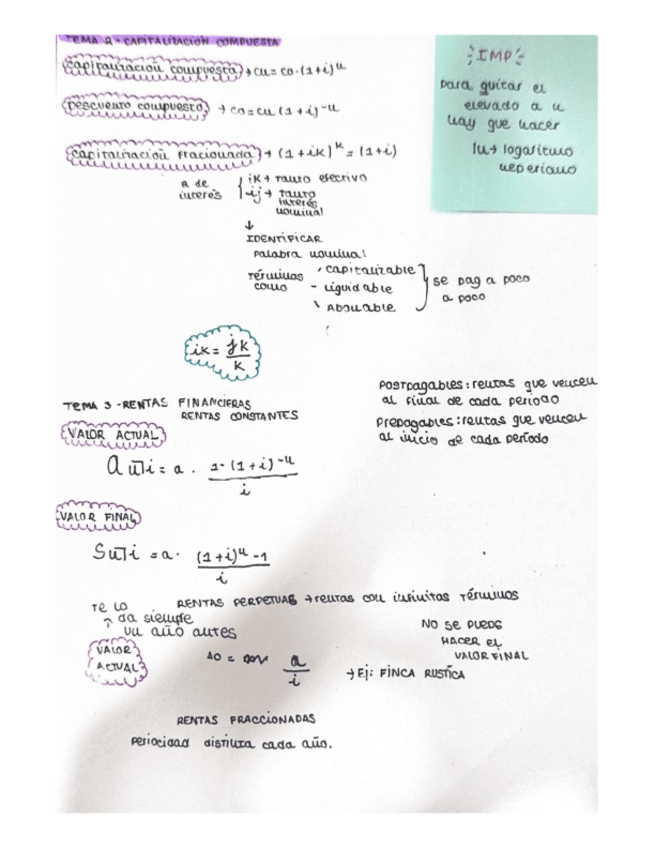 TEMA 2 - CAPITALIZACIÓN COMPUESTA
capitalización compuesta → cn = co · (1+i)^n
Descuento compuesto → co = cn (1+i)^-n
capitalización Fraccionada → (1+ik)^k = (1+i)
a de interés
ik → tanto efectivo
ij → tanto interés nominal
↓
IDENTIFICAR
Palabra nominal
términos como
, capitalizable
- Liquidable
\ Abonable
se pag a poco a poco
ik = jk / k
IMP
para quitar el
elevado a n
hay que hacer
ln → logaritmo
neperiano
TEMA 3 - RENTAS FINANCIERAS
RENTAS CONSTANTES
POSTPAGABLES: rentas que vencen
al final de cada período
PREPAGABLES: rentas que vencen
al inicio de cada período
VALOR ACTUAL
a n̅| i = a · 1 - (1+i)^-n / i
VALOR FINAL
S n̅| i = a · (1+i)^n - 1 / i
RENTAS PERPETUAS → rentas con infinitos términos
Te lo
↑ da siempre
un año antes
NO SE PUEDE
HACER EL
VALOR FINAL
VALOR
ACTUAL
A0 = a / i
→ Ej: FINCA RUSTICA
RENTAS FRACCIONADAS
Periocidad distinta cada año.